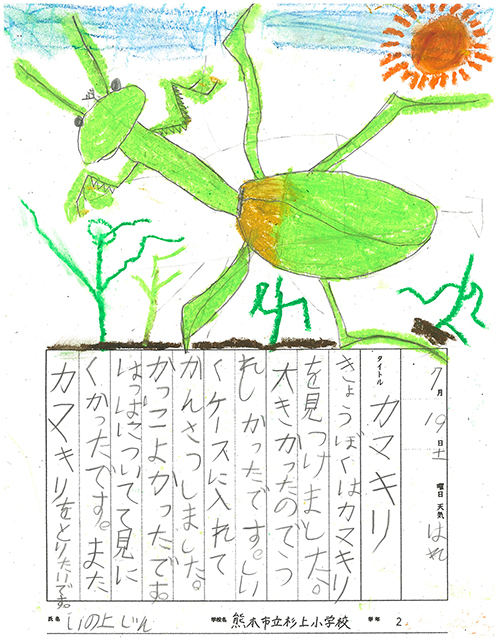 7月19日土曜日 天気 はれ
タイトル カマキリ
きょうぼくはカマキリ
を見つけました。
大きかったのでう
れしかったです。しい
くケースに入れて
かんさつしました。
かっこよかったです
はっぱについてて見に
くかったです。また
カマキリをとりたいです。
氏名 いの上じん 学校名 熊本市立杉上小学校 学年 2